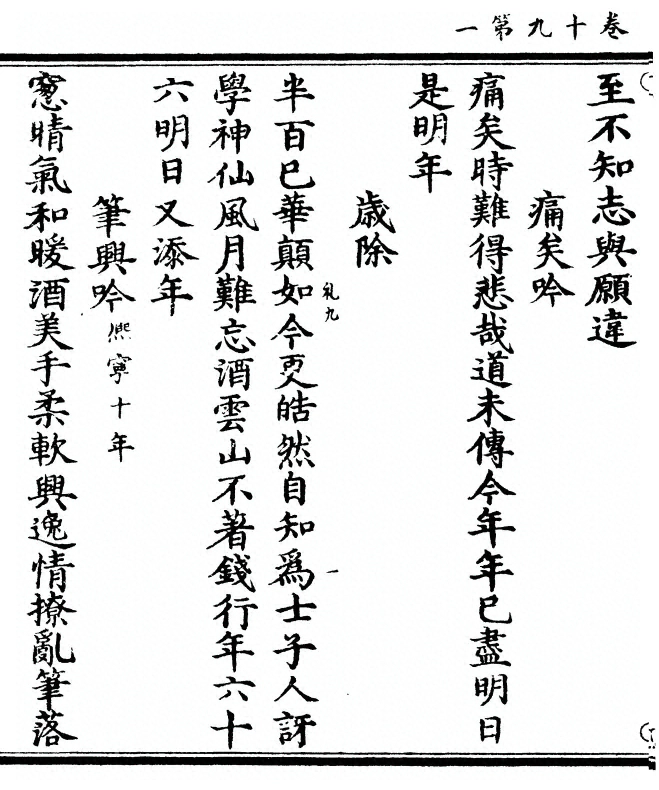 卷十九第一
至不知志與願違
痛矣吟
痛矣時難得悲哉道未傳今年年已盡明日
是明年
歲除
半百已華顛如今更皓然自知爲士子人訝
礼九
一
學神仙風月難忘酒雲山不著錢行年六十
六明日又添年
筆興吟熈寧十年
窻晴氣和暖酒美手柔軟興逸情撩亂筆落